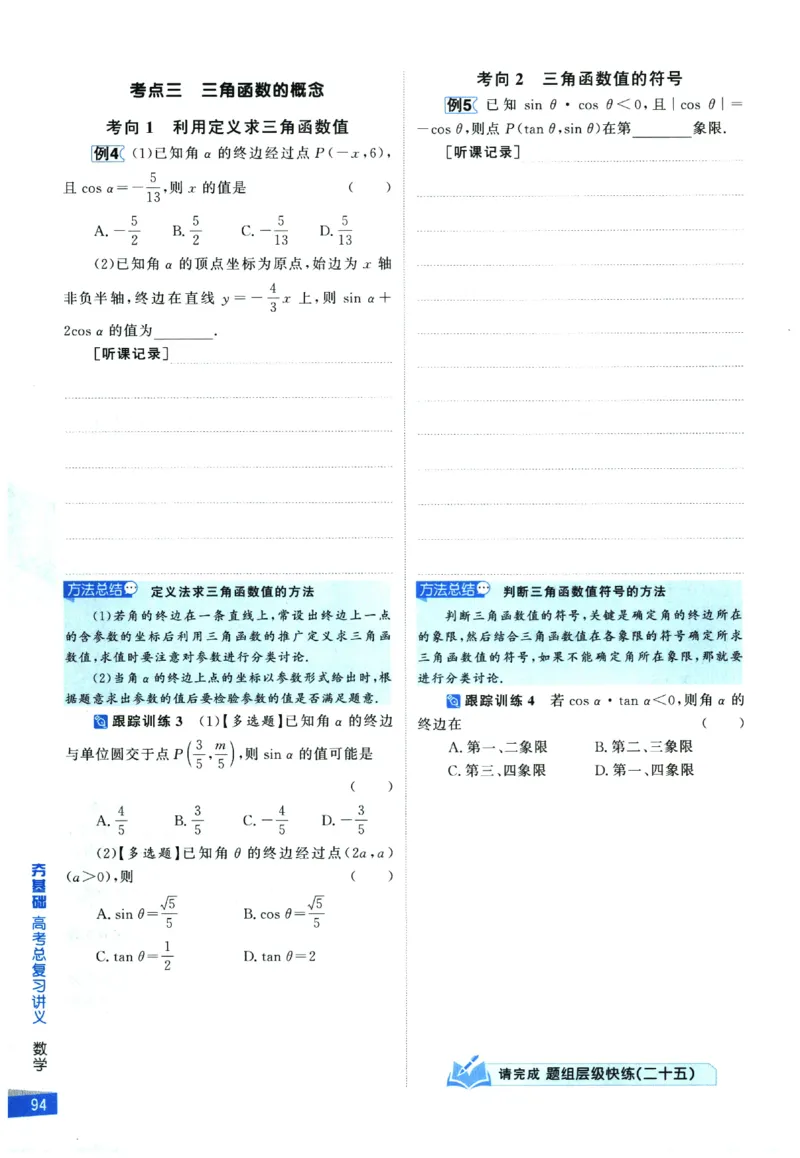 考点三 三角函数的概念
考向 1 利用定义求三角函数值
例4 (1)已知角 α 的终边经过点 P(-x,6),
且 cos α=-5/13,则 x 的值是 ( )
A. -5/2 B. 5/2 C. -5/13 D. 5/13
(2)已知角 α 的顶点坐标为原点,始边为 x 轴
非负半轴,终边在直线 y=-4/3x 上,则 sin α+
2cos α 的值为________.
[听课记录]
方法总结 定义法求三角函数值的方法
(1)若角的终边在一条直线上,常设出终边上一点
的含参数的坐标后利用三角函数的推广定义求三角函
数值,求值时要注意对参数进行分类讨论.
(2)当角 α 的终边上点的坐标以参数形式给出时,根
据题意求出参数的值后要检验参数的值是否满足题意.
跟踪训练 3 (1)【多选题】已知角 α 的终边
与单位圆交于点 P(3/5,m/5),则 sin α 的值可能是
( )
A. 4/5 B. 3/5 C. -4/5 D. -3/5
(2)【多选题】已知角 θ 的终边经过点(2a,a)
(a>0),则 ( )
A. sin θ=√5/5 B. cos θ=√5/5
C. tan θ=1/2 D. tan θ=2
考向 2 三角函数值的符号
例5 已知 sin θ·cos θ<0,且|cos θ|=
-cos θ,则点 P(tan θ,sin θ)在第________象限.
[听课记录]
方法总结 判断三角函数值符号的方法
判断三角函数值的符号,关键是确定角的终边所在
的象限,然后结合三角函数值在各象限的符号确定所求
三角函数值的符号,如果不能确定角所在象限,那就要
进行分类讨论.
跟踪训练 4 若 cos α·tan α<0,则角 α 的
终边在 ( )
A. 第一、二象限 B. 第二、三象限
C. 第三、四象限 D. 第一、四象限
请完成 题组层级快练(二十五)
夯基础 高考总复习讲义 数学
94